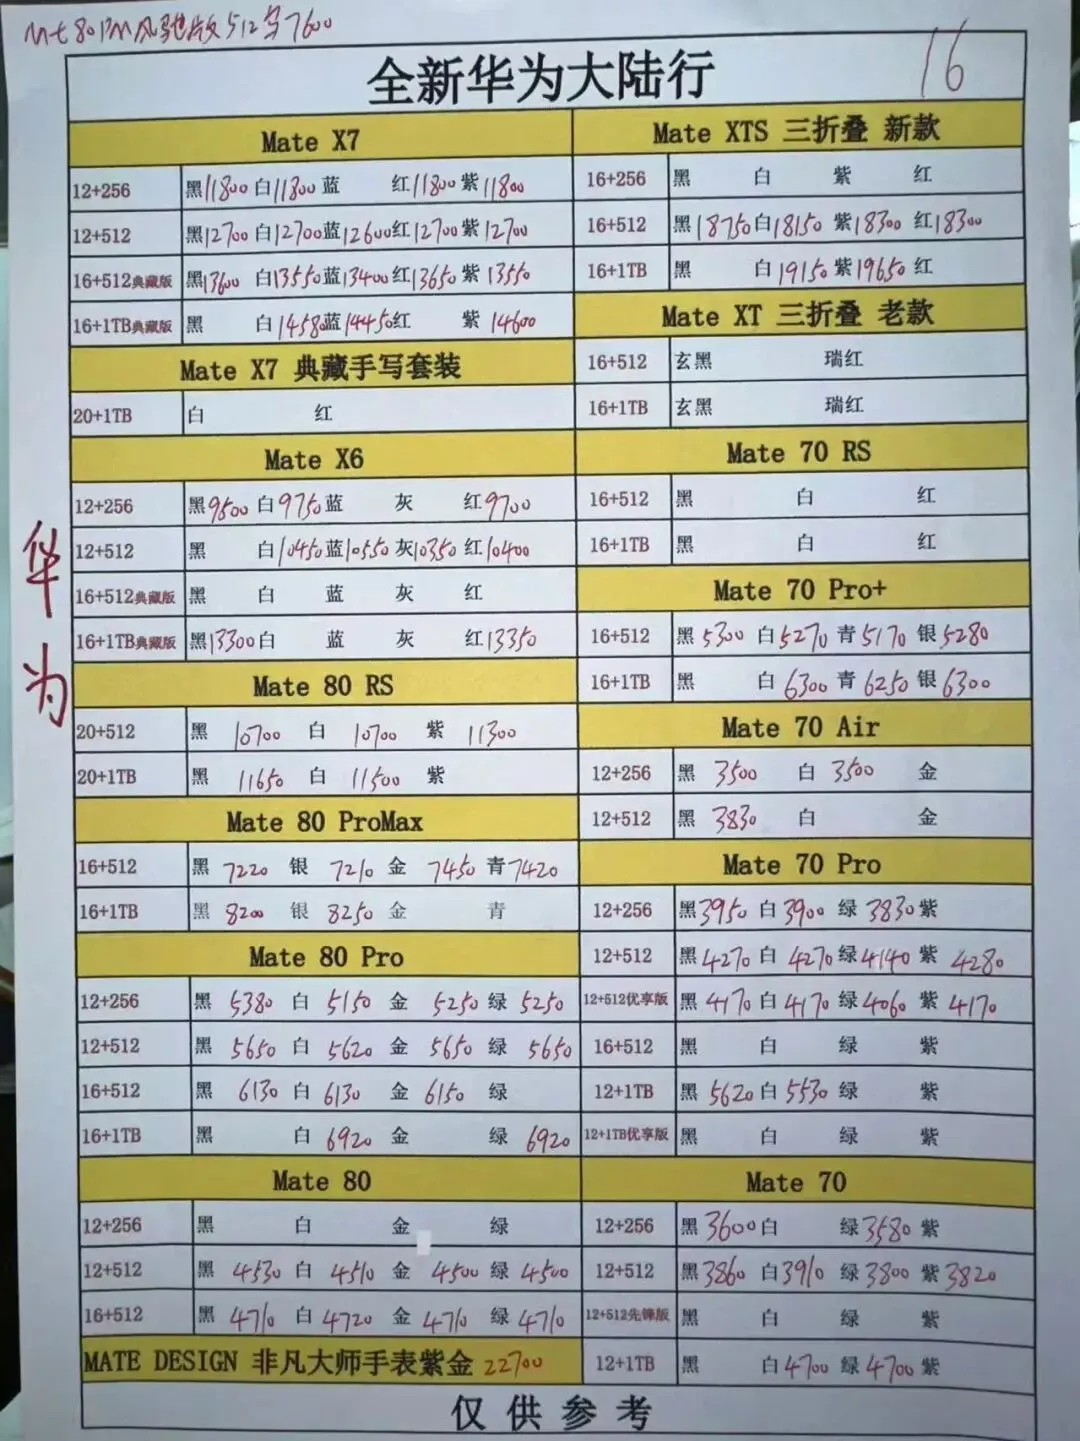 Mt80PM风驰版512黑7600
全新华为大陆行
16
华为
Mate X7
12+256 黑11800 白11800 蓝 红11800 紫11800
12+512 黑12700 白12700 蓝12600 红12700 紫12700
16+512典藏版 黑13600 白13550 蓝13400 红13650 紫13550
16+1TB典藏版 黑 白14580 蓝14450 红 紫14600
Mate X7 典藏手写套装
20+1TB 白 红
Mate X6
12+256 黑9500 白9750 蓝 灰 红9700
12+512 黑 白10450 蓝10550 灰10350 红10400
16+512典藏版 黑 白 蓝 灰 红
16+1TB典藏版 黑13300 白 蓝 灰 红13350
Mate 80 RS
20+512 黑 10700 白 10700 紫 11300
20+1TB 黑 11650 白 11500 紫
Mate 80 ProMax
16+512 黑 7220 银 7210 金 7450 青 7420
16+1TB 黑 8200 银 8250 金 青
Mate 80 Pro
12+256 黑 5380 白 5150 金 5250 绿 5250
12+512 黑 5650 白 5620 金 5650 绿 5650
16+512 黑 6130 白 6130 金 6150 绿
16+1TB 黑 白 6920 金 绿 6920
Mate 80
12+256 黑 白 金 绿
12+512 黑 4530 白 4510 金 4500 绿 4500
16+512 黑 4710 白 4720 金 4710 绿 4710
MATE DESIGN 非凡大师手表紫金 22700
Mate XTS 三折叠 新款
16+256 黑 白 紫 红
16+512 黑18750 白18150 紫18300 红18300
16+1TB 黑 白19150 紫19650 红
Mate XT 三折叠 老款
16+512 玄黑 瑞红
16+1TB 玄黑 瑞红
Mate 70 RS
16+512 黑 白 红
16+1TB 黑 白 红
Mate 70 Pro+
16+512 黑 5300 白 5270 青 5170 银 5280
16+1TB 黑 白 6300 青 6250 银 6300
Mate 70 Air
12+256 黑 3500 白 3500 金
12+512 黑 3830 白 金
Mate 70 Pro
12+256 黑3950 白3900 绿 3830 紫
12+512 黑4270 白 4270 绿4140 紫 4280
12+512优享版 黑4170 白4170 绿4060 紫 4170
16+512 黑 白 绿 紫
12+1TB 黑 5620 白 5530 绿 紫
12+1TB优享版 黑 白 绿 紫
Mate 70
12+256 黑3600 白 绿3580 紫
12+512 黑3860 白3910 绿3800 紫3820
12+512先锋版 黑 白 绿 紫
12+1TB 黑 白4700 绿 4700 紫
仅供参考